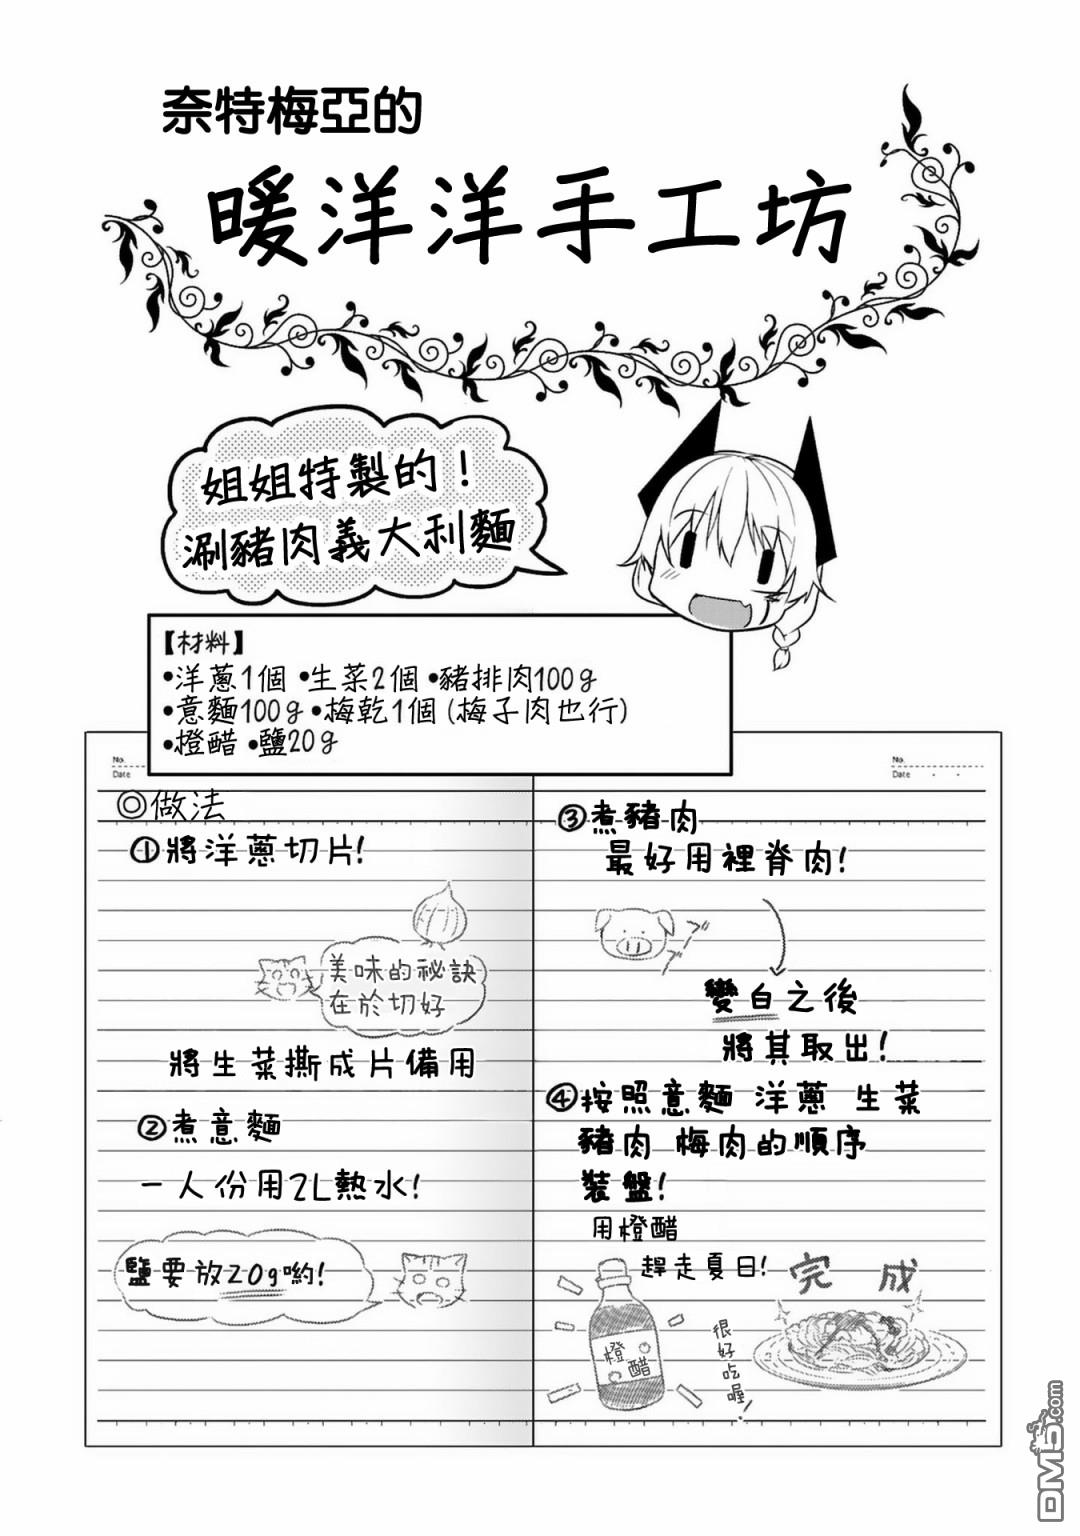 奈特梅亞的
暖洋洋手工坊
姐姐特製的！
涮豬肉義大利麵
【材料】
•洋蔥1個 •生菜2個 •豬排肉100g
•意麵100g •梅乾1個 (梅子肉也行)
•橙醋 •鹽20g
No.
Date
No.
Date
◎做法
①將洋蔥切片!
美味的祕訣
在於切好
將生菜撕成片備用
②煮意麵
一人份用2L熱水!
鹽要放20g喲!
③煮豬肉
最好用裡脊肉!
變白之後
將其取出!
④按照意麵 洋蔥 生菜
豬肉 梅肉的順序
裝盤!
用橙醋
趕走夏日!
完成
橙醋
很好吃喔!
DM5.com